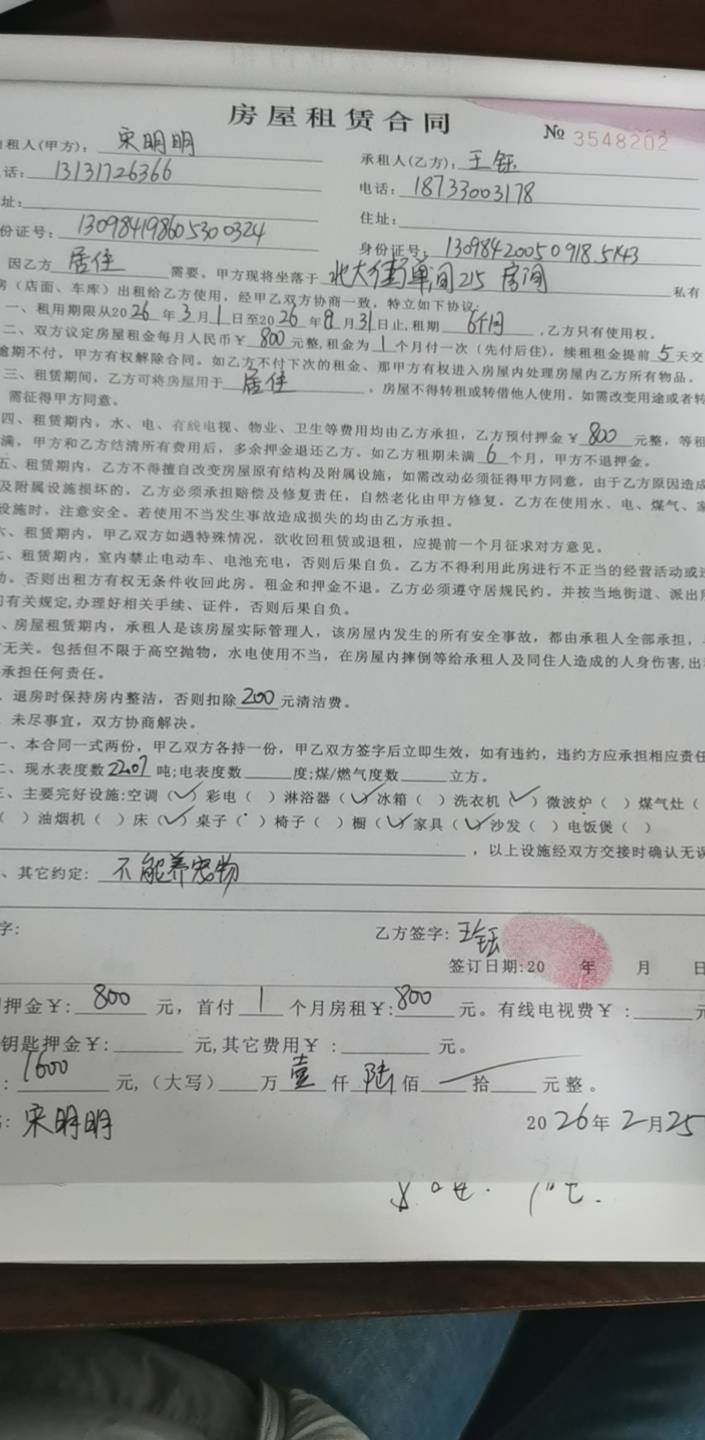 房屋租赁合同
№ 3548202
租人(甲方): 宋明明
承租人(乙方): 王钰
话: 13131726366
电话: 18733003178
址:
住址:
份证号: 130984198605300324
身份证号: 130984200509185143
因乙方 居住 需要。甲方现将坐落于 北大街单间215 房间 私有
房（店面、车库）出租给乙方使用，经甲乙双方协商一致，特立如下协议:
一、租用期限从2026年3月1日至2026年8月31日止,租期 6个月 ,乙方只有使用权。
二、双方议定房屋租金每月人民币￥ 800 元整,租金为 1 个月付一次（先付后住），续租租金提前 5 天交
逾期不付，甲方有权解除合同。如乙方不付下次的租金、那甲方有权进入房屋内处理房屋内乙方所有物品。
三、租赁期间，乙方可将房屋用于 居住 。房屋不得转租或转借他人使用。如需改变用途或者转
需征得甲方同意。
四、租赁期内，水、电、有线电视、物业、卫生等费用均由乙方承担，乙方预付押金￥ 800 元整，等租
满，甲方和乙方结清所有费用后，多余押金退还乙方。如乙方租期未满 6 个月，甲方不退押金。
五、租赁期内，乙方不得擅自改变房屋原有结构及附属设施，如需改动必须征得甲方同意，由于乙方原因造成
及附属设施损坏的，乙方必须承担赔偿及修复责任，自然老化由甲方修复。乙方在使用水、电、煤气、家
设施时，注意安全。若使用不当发生事故造成损失的均由乙方承担。
六、租赁期内，甲乙双方如遇特殊情况，欲收回租赁或退租，应提前一个月征求对方意见。
七、租赁期内，室内禁止电动车、电池充电，否则后果自负。乙方不得利用此房进行不正当的经营活动或
动。否则出租方有权无条件收回此房。租金和押金不退。乙方必须遵守居规民约。并按当地街道、派出所
有关规定,办理好相关手续、证件，否则后果自负。
、房屋租赁期内，承租人是该房屋实际管理人，该房屋内发生的所有安全事故，都由承租人全部承担，
无关。包括但不限于高空抛物，水电使用不当，在房屋内摔倒等给承租人及同住人造成的人身伤害,出
承担任何责任。
、退房时保持房内整洁，否则扣除 200 元清洁费。
、未尽事宜，双方协商解决。
一、本合同一式两份，甲乙双方各持一份，甲乙双方签字后立即生效，如有违约，违约方应承担相应责任
二、现水表度数 2207 吨;电表度数 度;煤/燃气度数 立方。
三、主要完好设施:空调（✓）彩电（ ）淋浴器（✓）冰箱（ ）洗衣机（✓）微波炉（ ）煤气灶（
（ ）油烟机（ ）床（✓）桌子（ ）椅子（ ）橱（✓）家具（✓）沙发（ ）电饭煲（ ）
，以上设施经双方交接时确认无误
、其它约定: 不能养宠物
字:
乙方签字: 王钰
签订日期:20 年 月 日
押金￥: 800 元，首付 1 个月房租￥: 800 元。有线电视费￥: 元
钥匙押金￥: 元,其它费用￥: 元。
: 1600 元,（大写） 万 壹 仟 陆 佰 拾 元整。
: 宋明明
2026年2月25